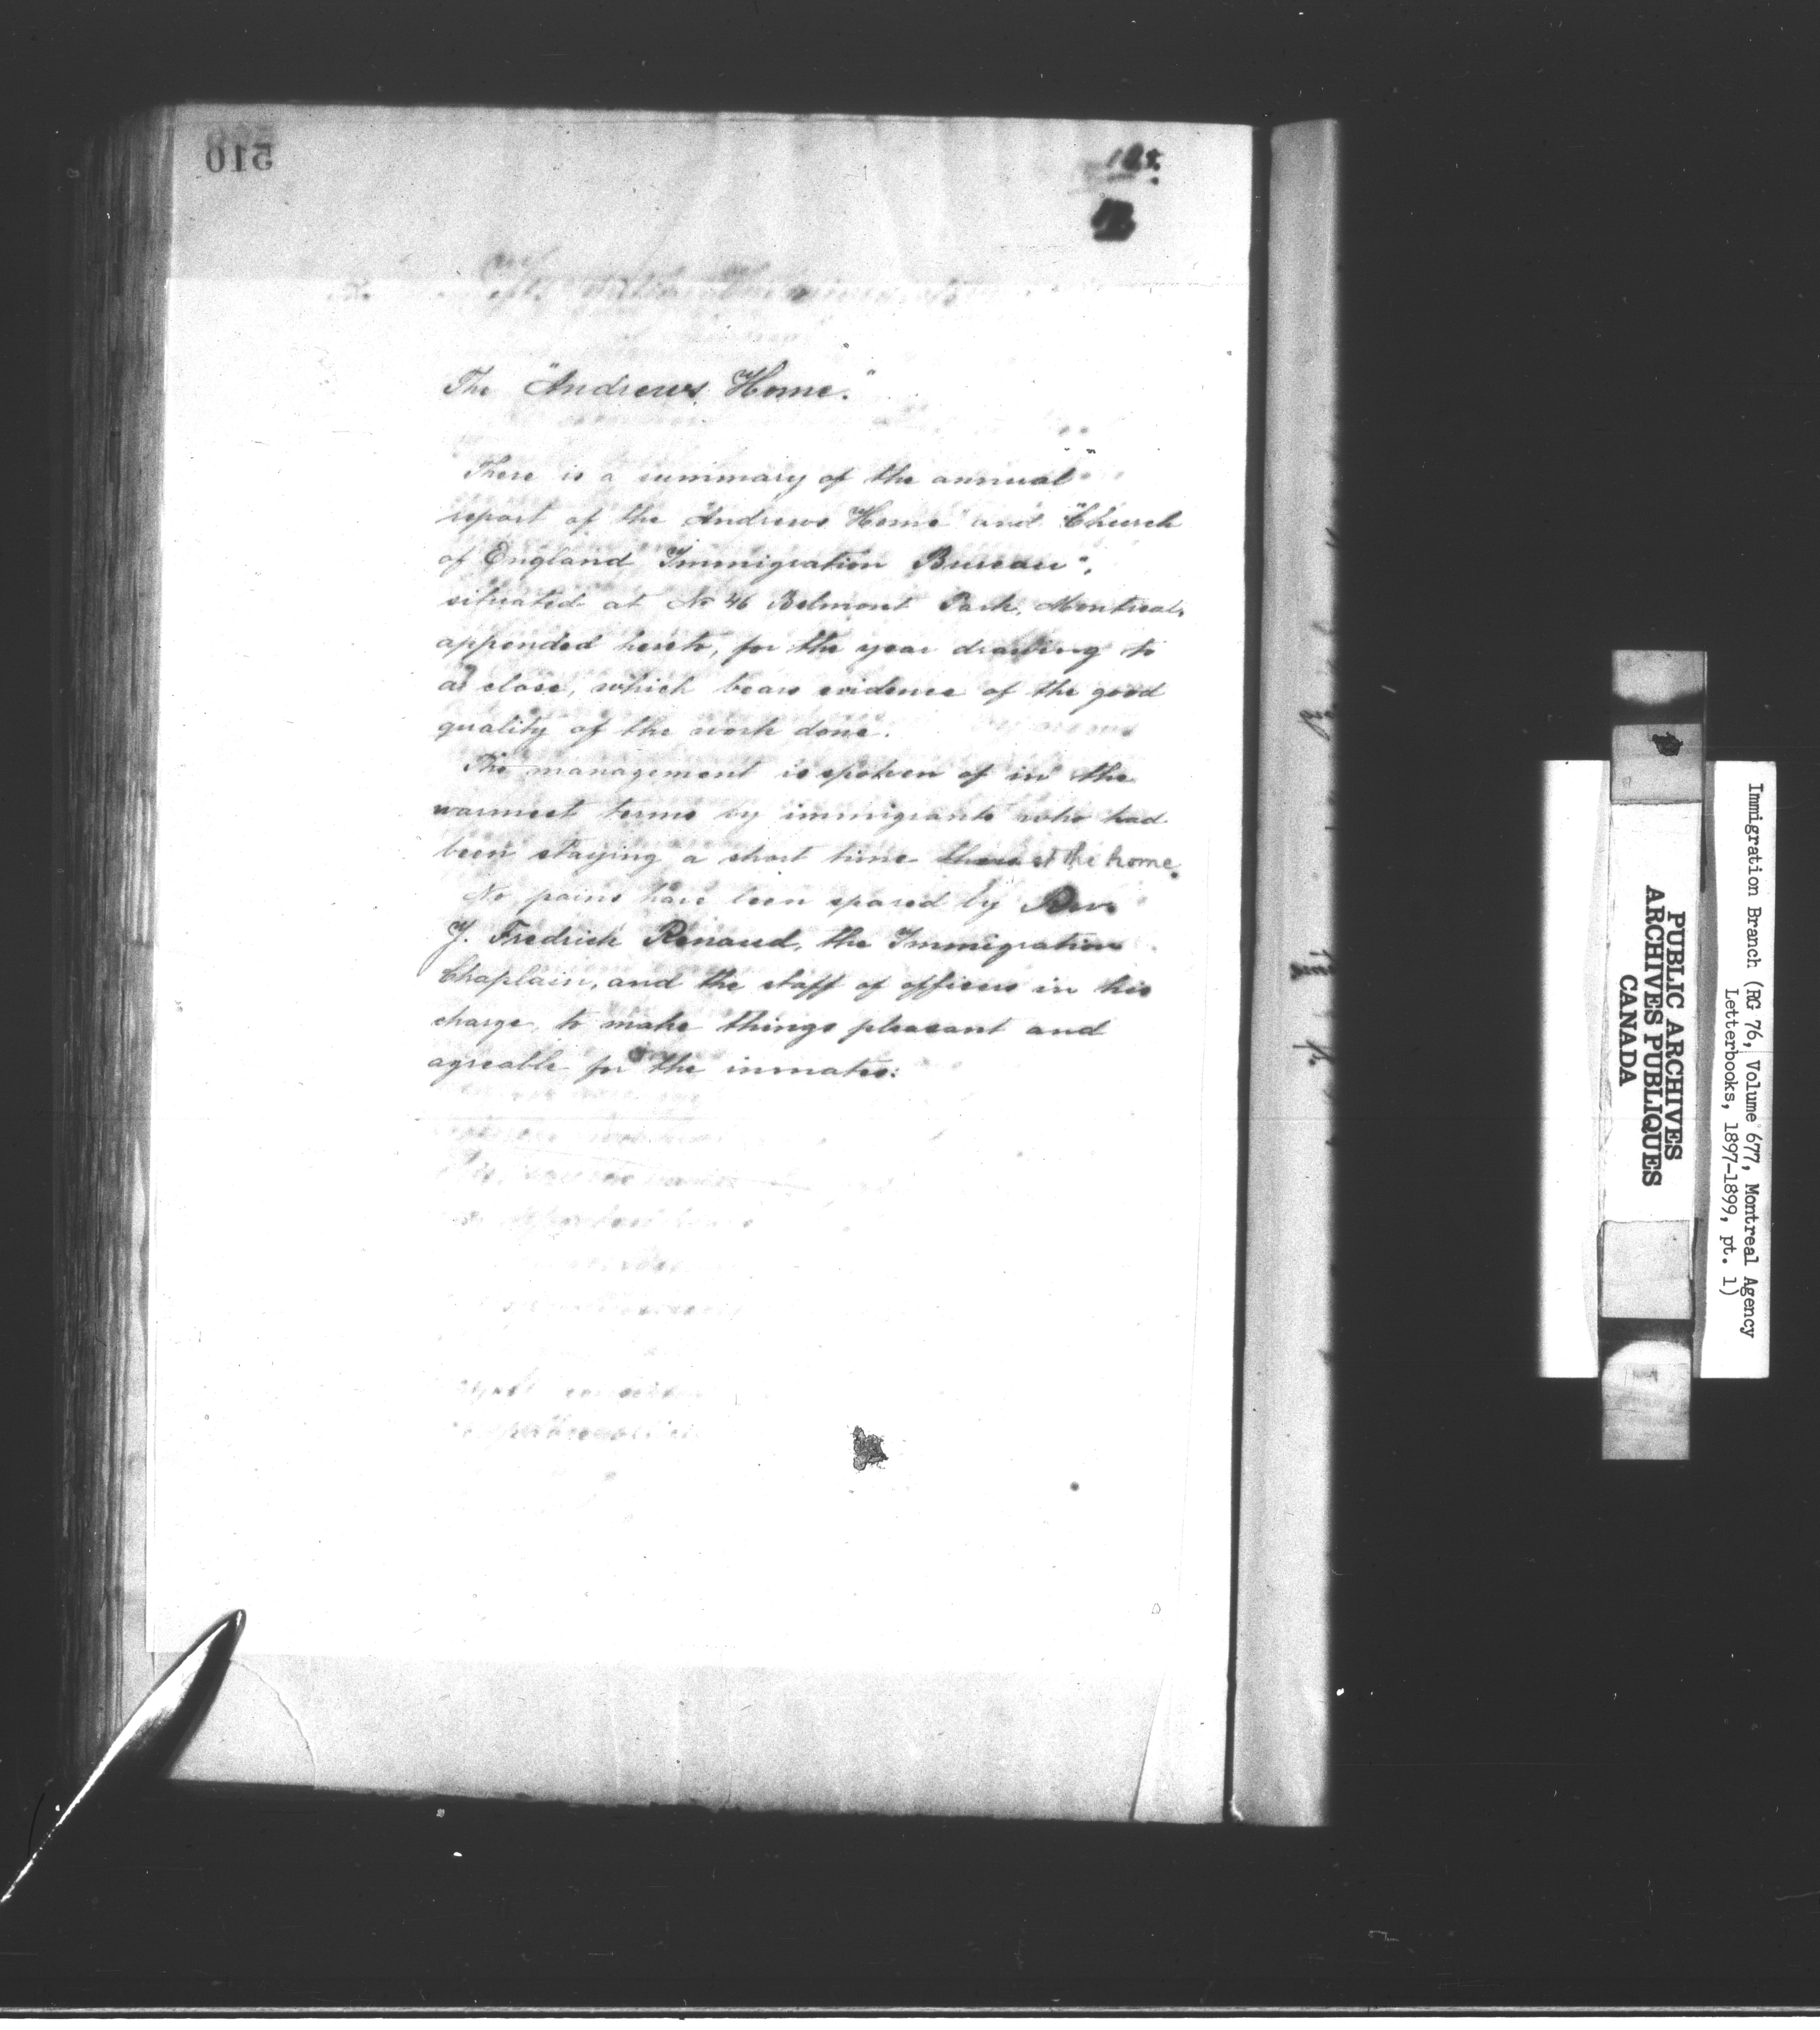 510
The "Andrews Home."
There is a summary of the annual
report of the "Andrews Home" and "Church
of England Immigration Bureau",
situated at No 46 Belmont Park, Montreal,
appended hereto, for the year drawing to
a close, which bears evidence of the good
quality of the work done.
The management is spoken of in the
warmest terms by immigrants who had
been staying a short time there at the home.
No pains have been spared by Rev.
J. Fredrick Renaud, the Immigration
Chaplain, and the staff of officers in his
charge, to make things pleasant and
agreable for the inmates.
Immigration Branch (RG 76, Volume 677, Montreal Agency
Letterbooks, 1897-1899, pt. 1)
PUBLIC ARCHIVES
ARCHIVES PUBLIQUES
CANADA